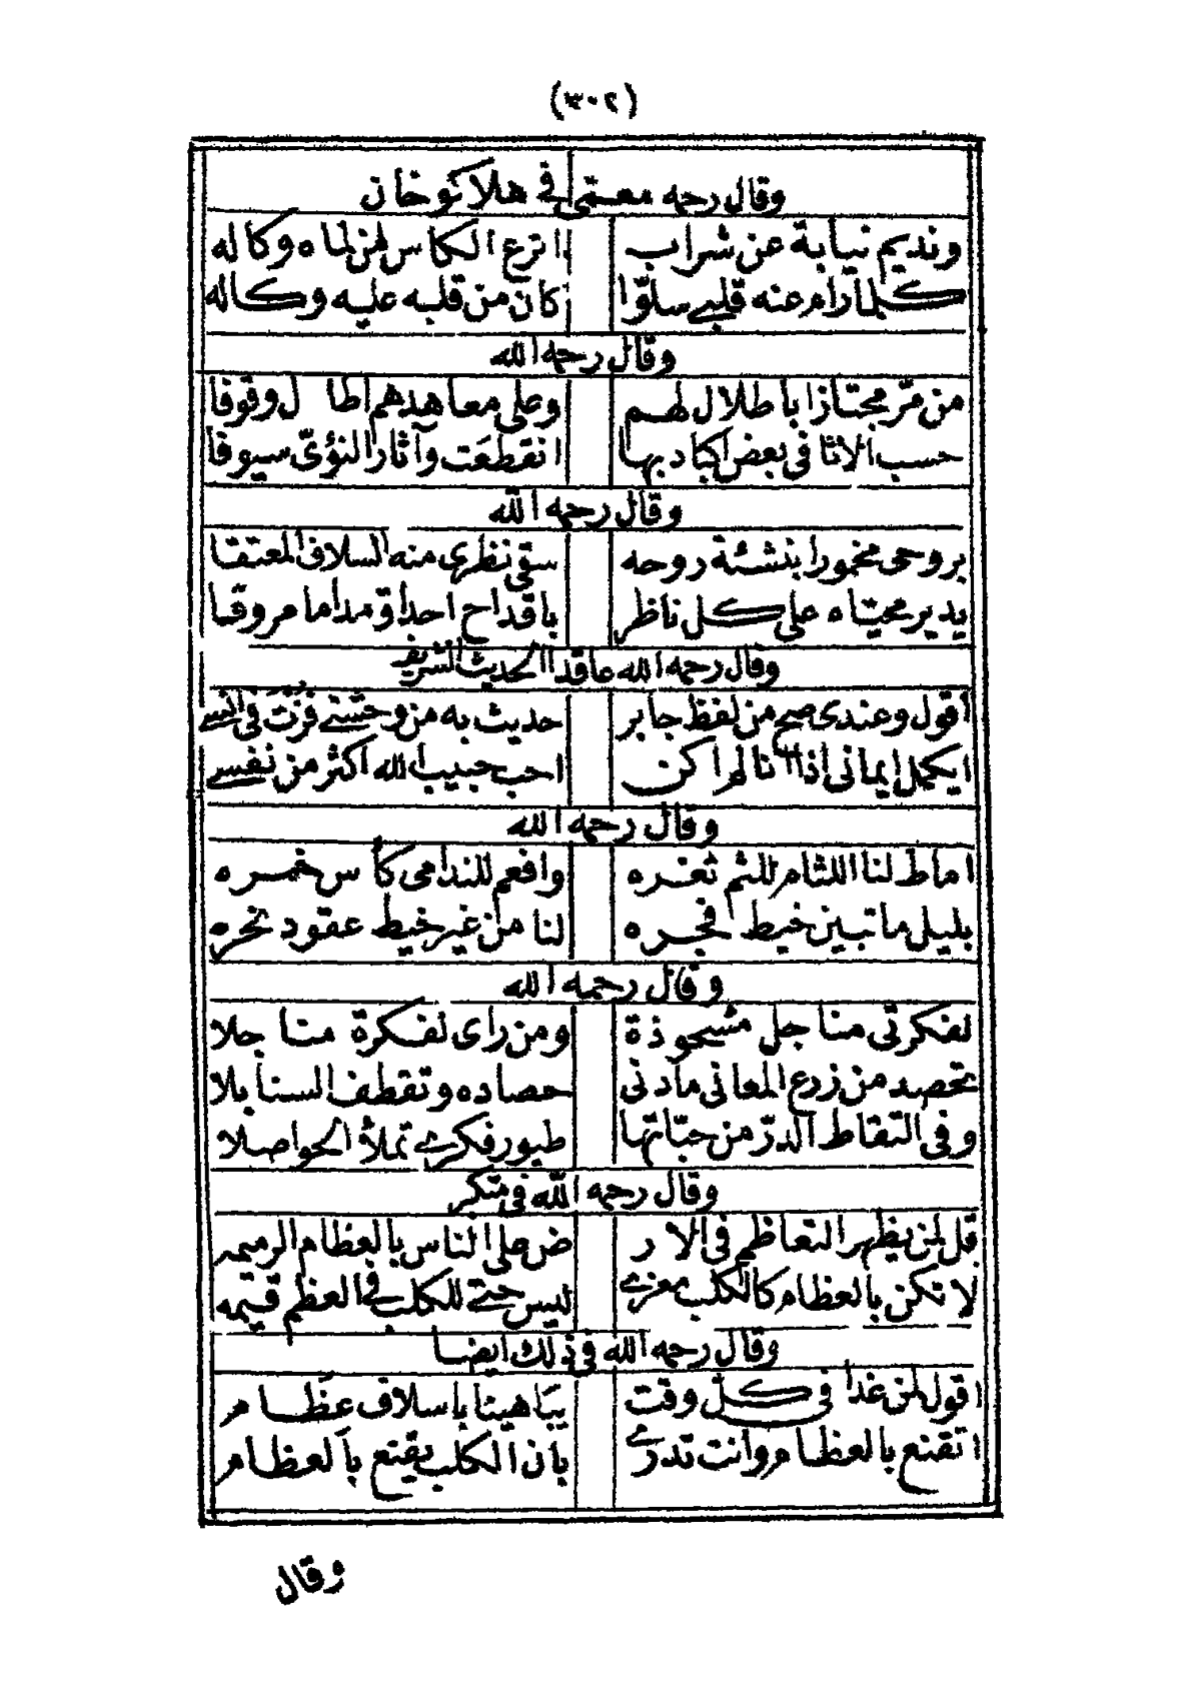 (٣٠٢)
وقال رحمه معمى في هلاكو خان
ونديم نيابة عن شراب اترع الكاس من لماه وكاله
كلما رام عنه قلبي سلوّا كان من قلبه عليه وكاله
وقال رحمه الله
من مرّ مجتازا باطلال لهم وعلى معاهدهم اطال وقوفا
حسب الاثافي بعض اكباد بها انقطعت وآثار النؤىّ سيوفا
وقال رحمه الله
بروحى مخمورا بنشئة روحه سقى نظرى منه السلاف المعتقا
يدير محيّاه على كل ناظر باقداح احداق مداما مروقا
وقال رحمه الله عاقدا الحديث الشريف
اقول وعندى صح من لفظ جابر حديث به من وحشتي فزت في انسي
ايكمل ايمانى اذا انا لم اكن احب حبيب الله اكثر من نفسي
وقال رحمه الله
اماط لنا اللثام للثم ثغره وافعم للندامى كأس خمره
بليلى ما تبين خيط فجره لنا من غير خيط عقود نحره
وقال رحمه الله
لفكرتى مناجل مشحوذة ومن راى لفكرة مناجلا
تحصد من زرع المعانى مادنى حصاده وتقطف السنابلا
وفى التقاط الدرّ من حبّاتها طيور فكري تملأ الحواصلا
وقال رحمه الله فى متكبر
قل لمن يظهر التعاظم فى الار ض على الناس بالعظام الرميمه
لا تكن بالعظام كالكلب مغري ليس حتي للكلب في العظم قيمه
وقال رحمه الله فى ذلك ايضا
اقول لمن غدا فى كل وقت يباهينا باسلاف عظام
اتقنع بالعظام وانت تدري بان الكلب يقنع بالعظام
وقال